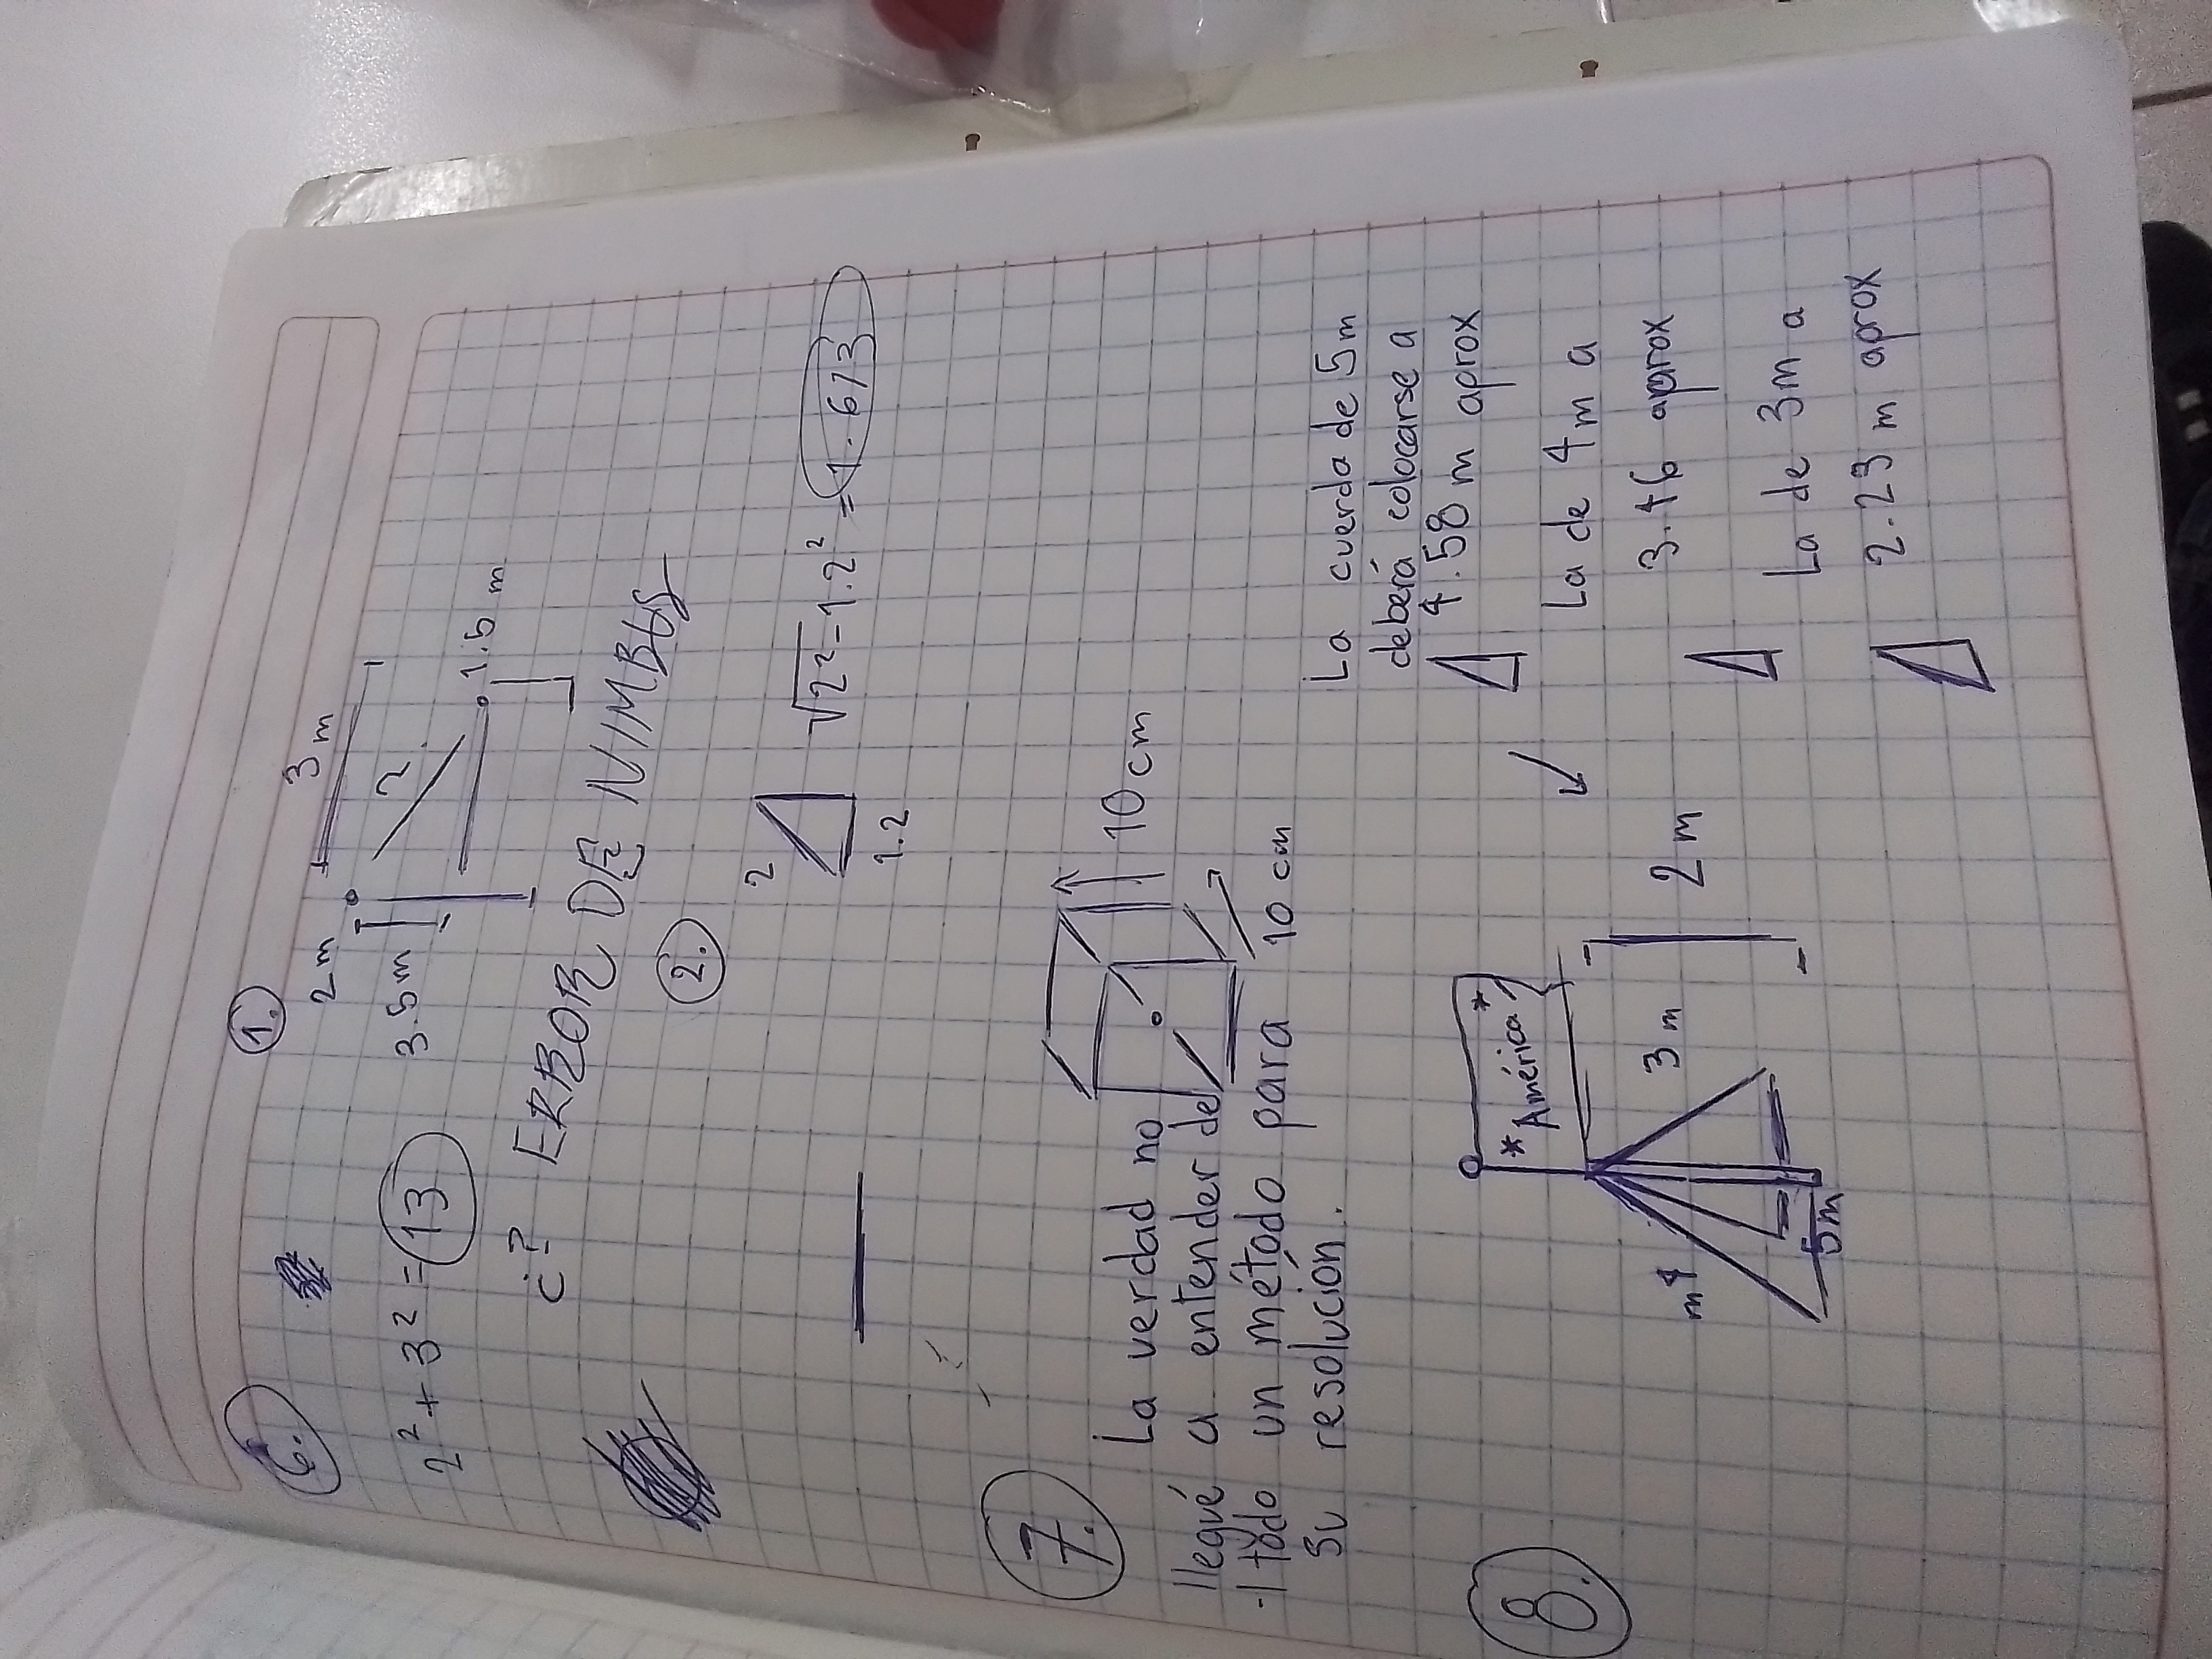 6.
2² + 3² = 13
¿?
ERROR DE NIMBUS
1.
2 m
3 m
3.5 m
?
1.5 m
2.
2
1.2
√2² - 1.2² = 1.613
7.
La verdad no
llegué a entender de
-l todo un método para
su resolución.
10 cm
10 cm
8.
*América*
m4
3 m
5m
2 m
La cuerda de 5m
deberá colocarse a
4.58 m aprox
La de 4m a
3.46 aprox
La de 3m a
2.23 m aprox